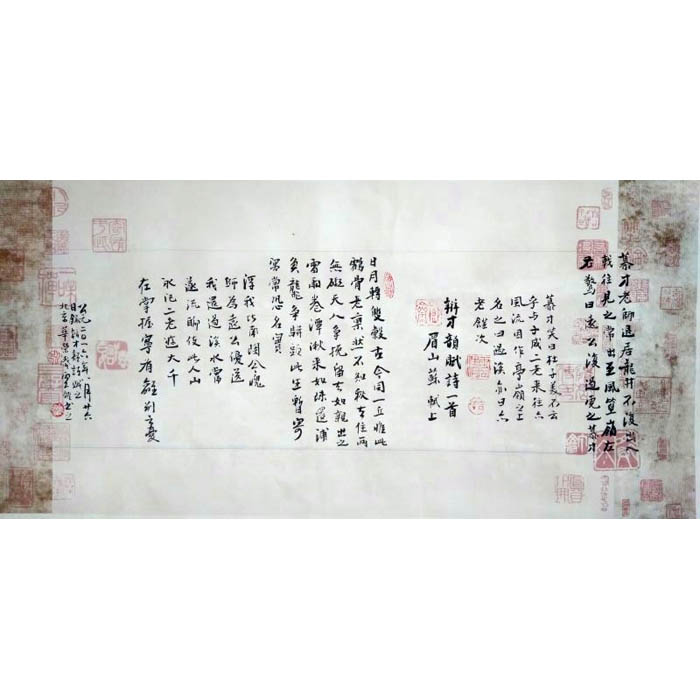 辯才老師退居龍井不復出入
軾往見之常出至風篁嶺左
右驚曰遠公復過虎辯才
辯才笑曰杜子美不云
乎與子成二老來往亦
風流因作亭嶺之上
名之曰過溪亦曰二
老謹次
辯才韻賦詩一首
眉山蘇軾上
日月轉雙轂古今同一丘惟此
鶴骨老凜然不知秋去住兩
無礙天人爭挽留去如龍出山
雷雨卷潭湫來如珠還浦
魚龍爭駢頭此生暫寄
寓常恐名實
浮我比陶令愧
師為遠公優送
我還過溪水當
逆流聊使此人山
永記二老遊大千
在掌握寧有離別憂
公元二〇一六年八月廿六
日錄辯才韻詩
北京華榮